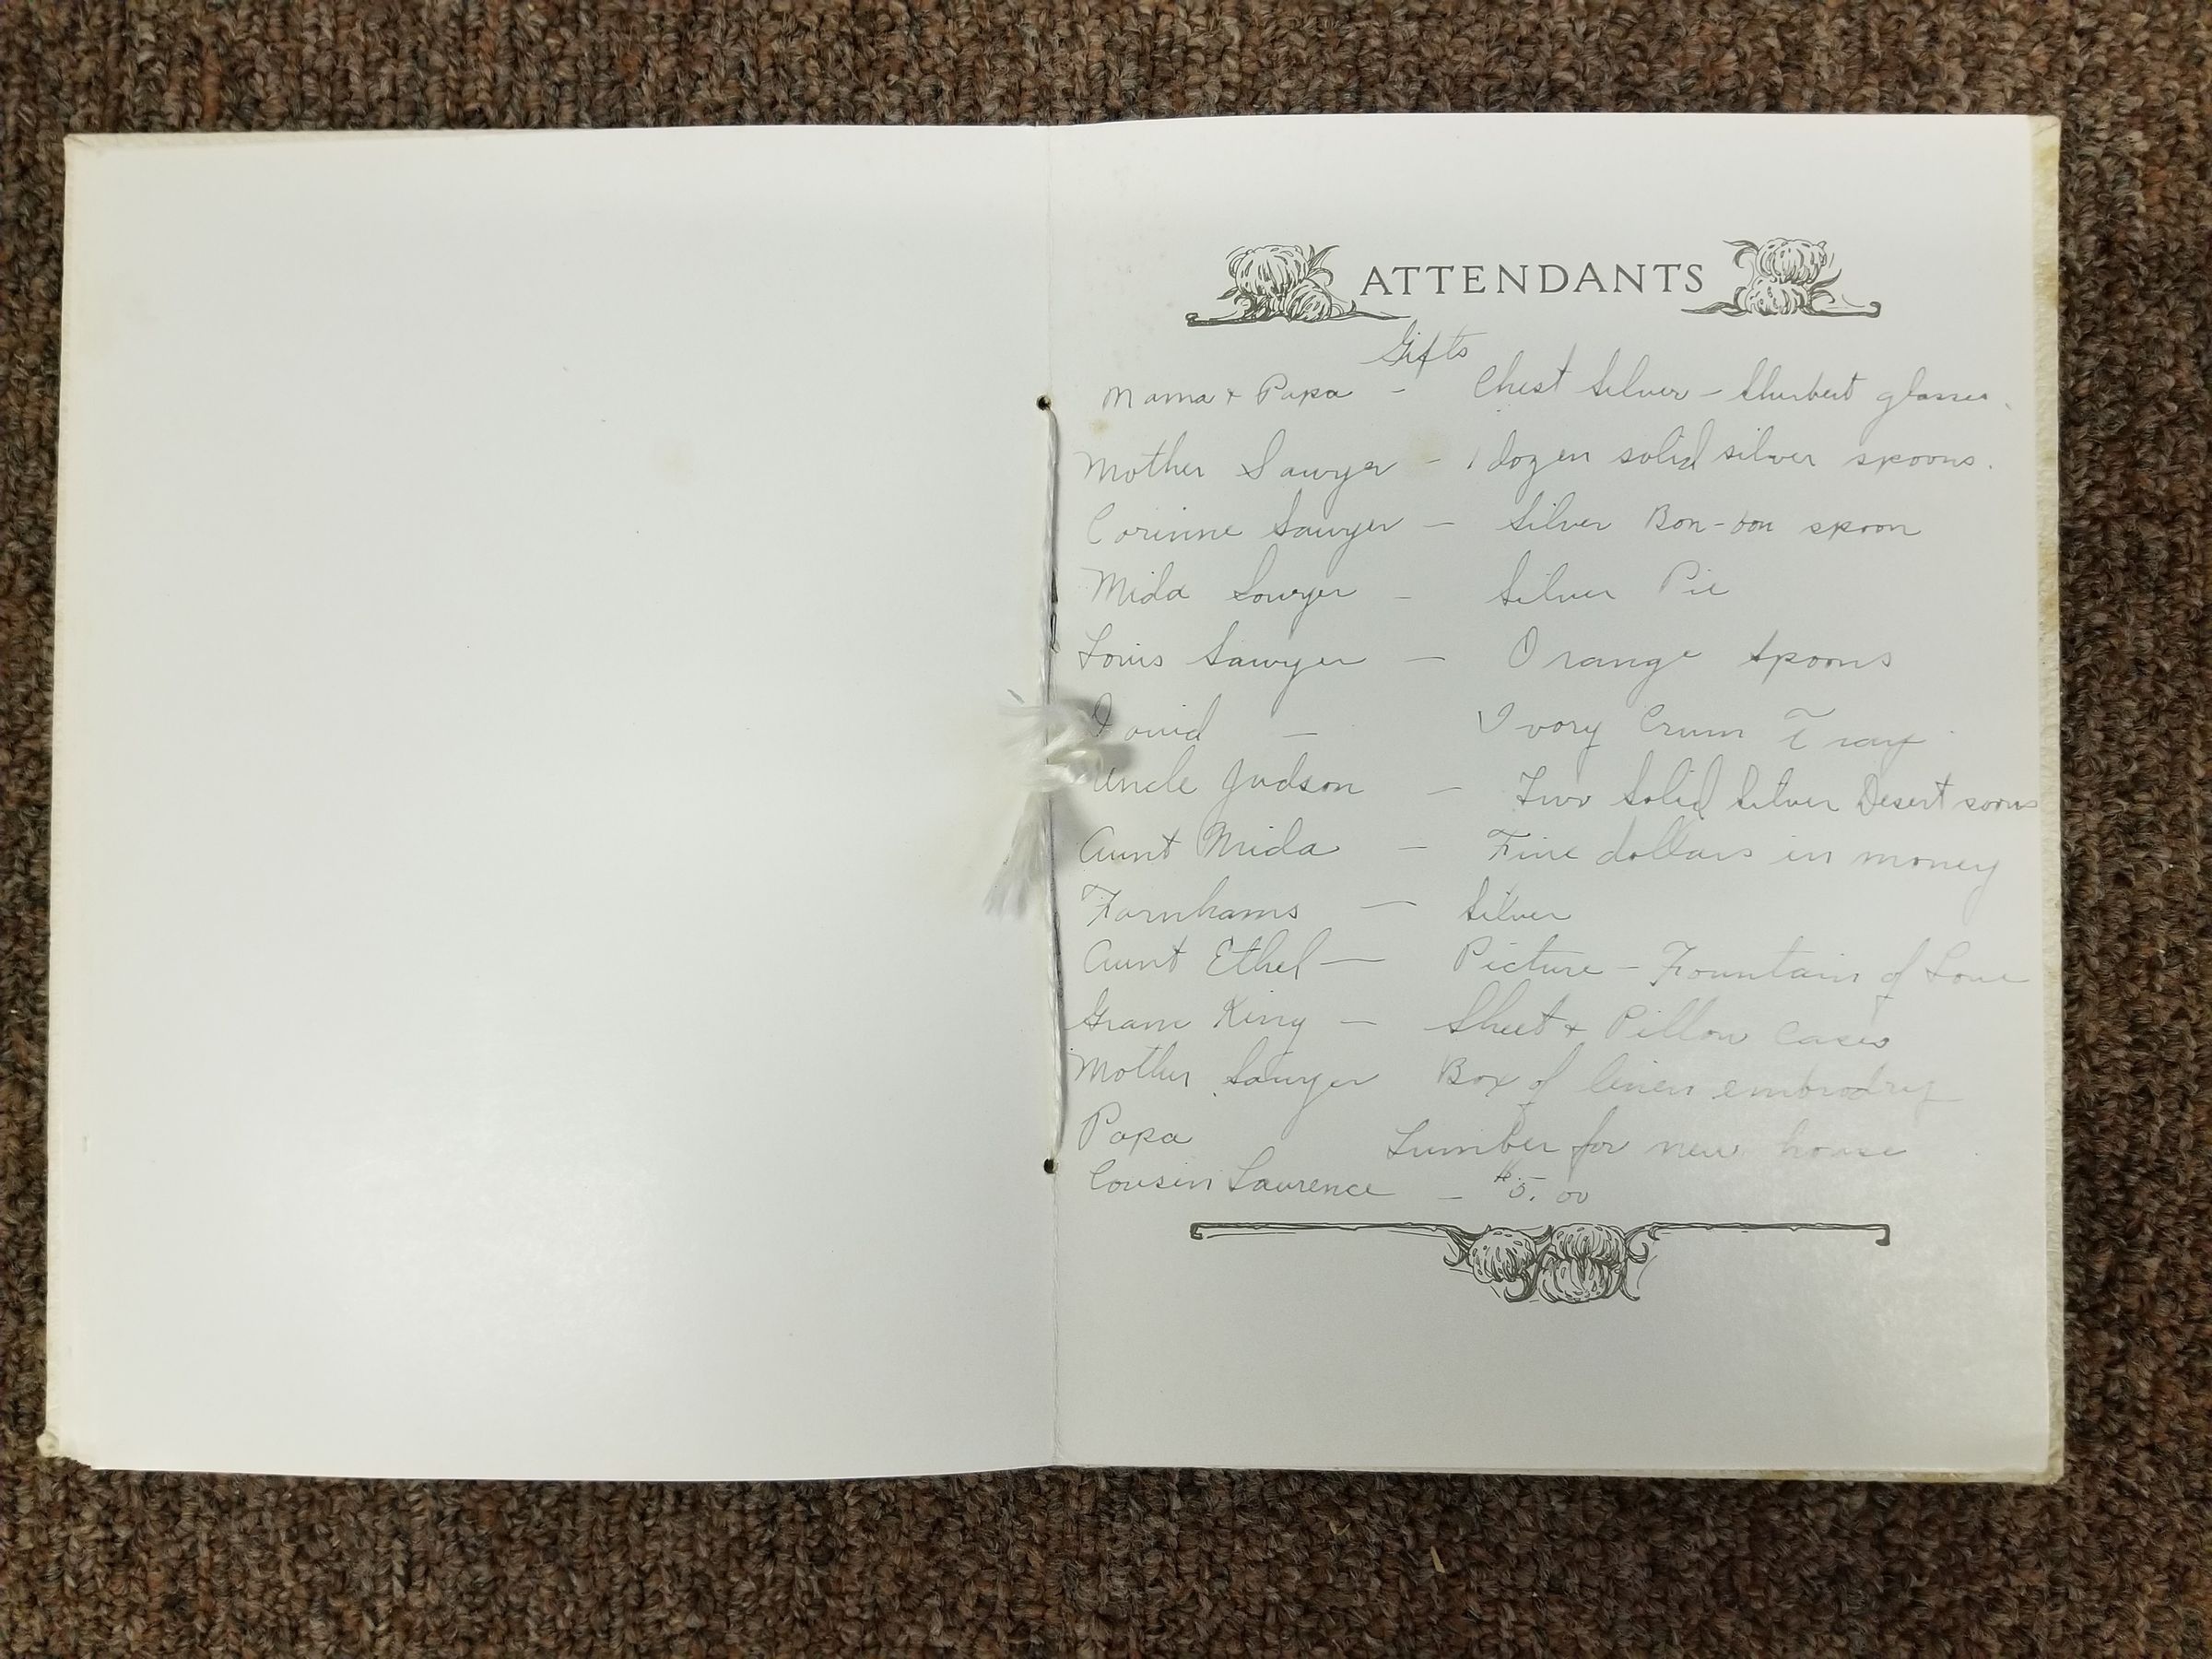 ATTENDANTS
Gifts
Mama & Papa - Chest Silver - Shurbert glasses.
Mother Sawyer - 1 dozen solid silver spoons.
Corinne Sawyer - Silver Bon-bon spoon
Mida Sawyer - Silver Pie
Louis Sawyer - Orange spoons
David - Ivory Crum Tray
Uncle Judson - Two Solid Silver Desert soons
Aunt Mida - Five dollars in money
Farnhams - Silver
Aunt Ethel - Picture - Fountain of Love
Gram King - Sheet & Pillow Cases
Mother Sawyer Box of linen embrodry
Papa Lumber for new house
Cousin Laurence - $5.00